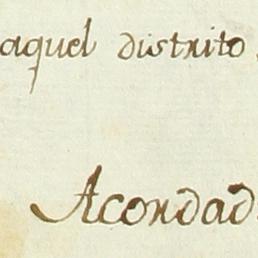 aquel distrito
Acordad